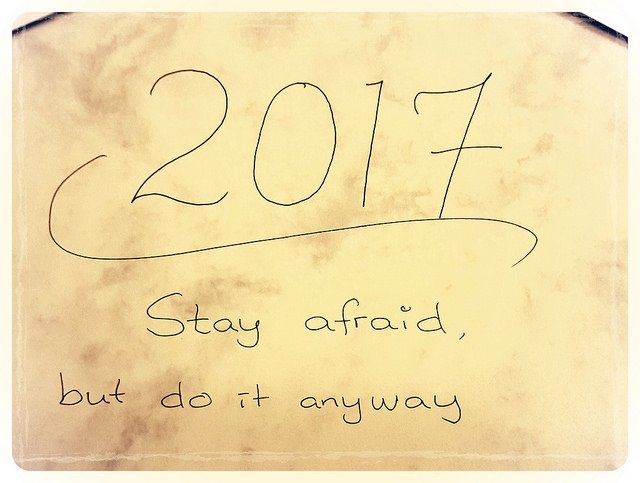 2017
Stay afraid,
but do it anyway